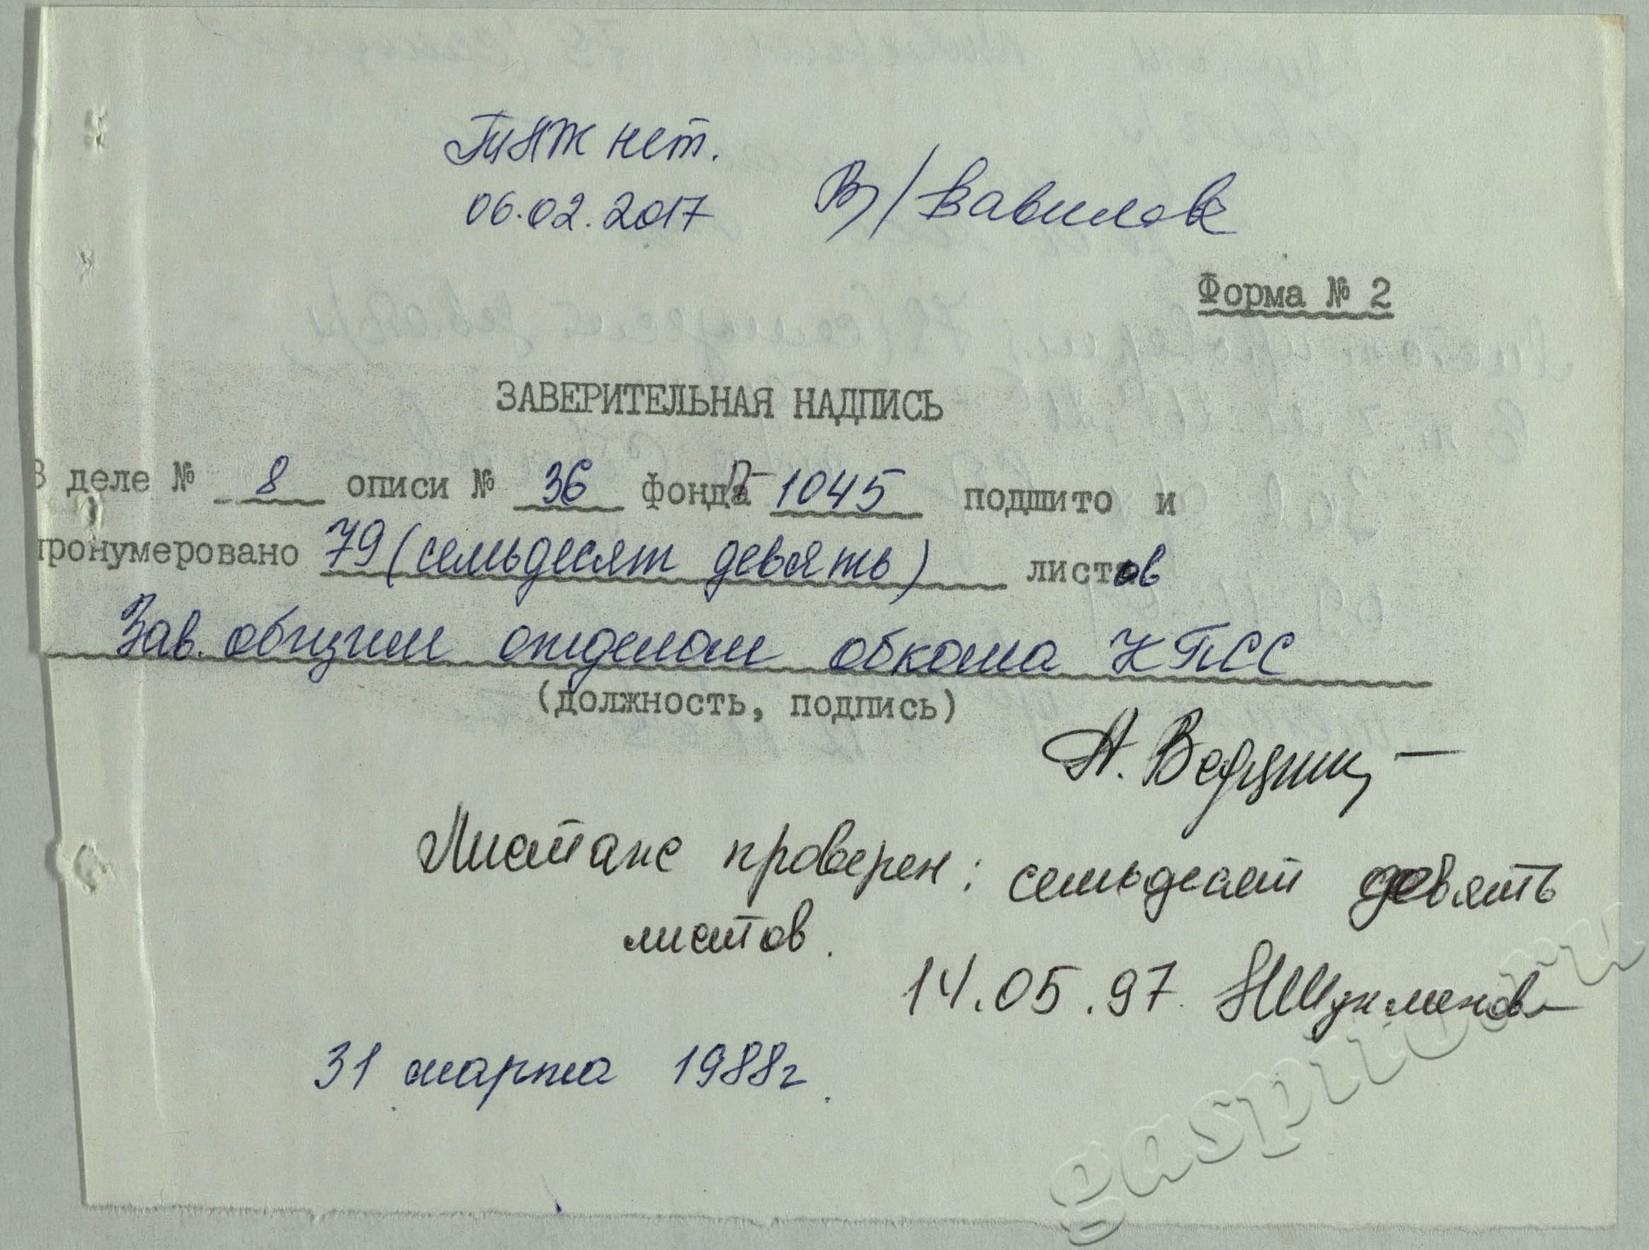 нет.
06.02.2017
В/Вавилов
Форма № 2
ЗАВЕРИТЕЛЬНАЯ НАДПИСЬ
В деле № 8 описи № 36 фонда П-1045 подшито и
пронумеровано 79 (семьдесят девять) листов
Зав. общим отделом обкома КПСС
(должность, подпись)
Листаж проверен: семьдесят девять
листов.
14.05.97
31 марта 1988г.
gaspito.ru